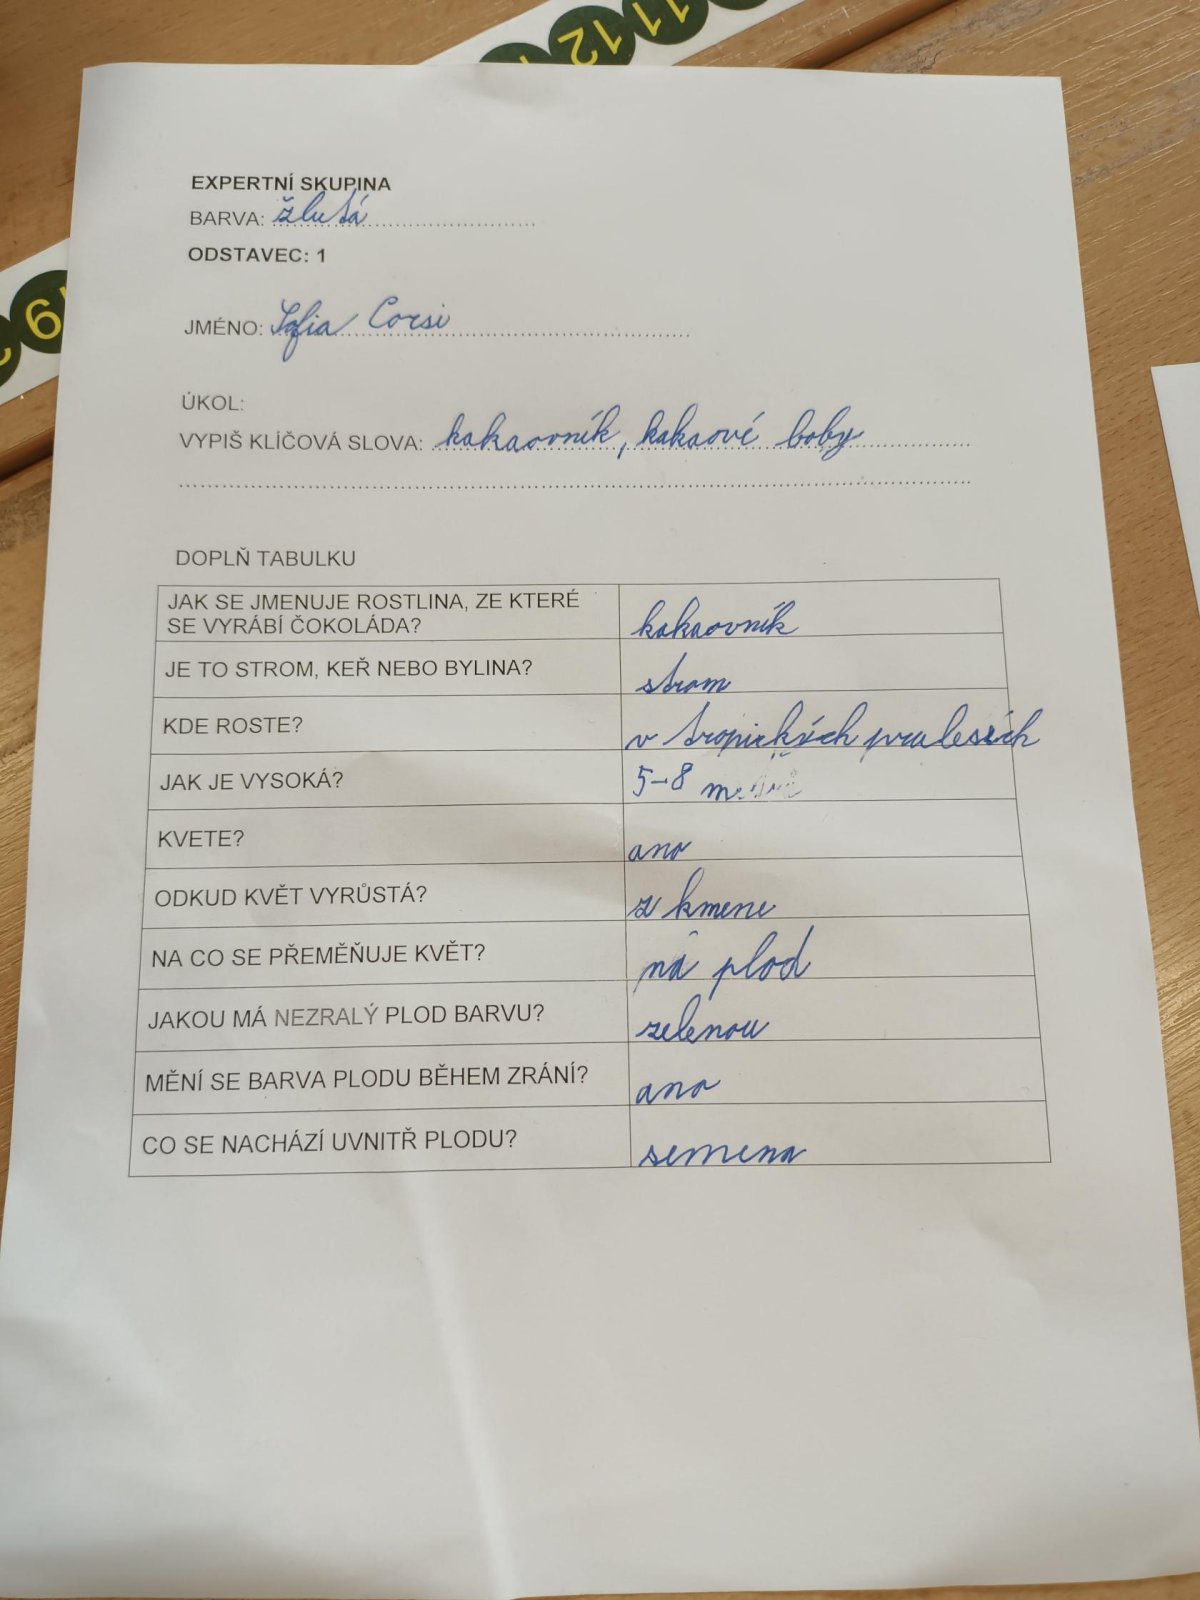 11 12
19
EXPERTNÍ SKUPINA
BARVA: žlutá
ODSTAVEC: 1
JMÉNO: Sofia Corsi
ÚKOL:
VYPIŠ KLÍČOVÁ SLOVA: kakaovník, kakaové boby
DOPLŇ TABULKU
JAK SE JMENUJE ROSTLINA, ZE KTERÉ
SE VYRÁBÍ ČOKOLÁDA? kakaovník
JE TO STROM, KEŘ NEBO BYLINA? strom
KDE ROSTE? v tropických pralesích
JAK JE VYSOKÁ? 5-8
KVETE? ano
ODKUD KVĚT VYRŮSTÁ? z kmene
NA CO SE PŘEMĚŇUJE KVĚT? na plod
JAKOU MÁ NEZRALÝ PLOD BARVU? zelenou
MĚNÍ SE BARVA PLODU BĚHEM ZRÁNÍ? ano
CO SE NACHÁZÍ UVNITŘ PLODU? semena